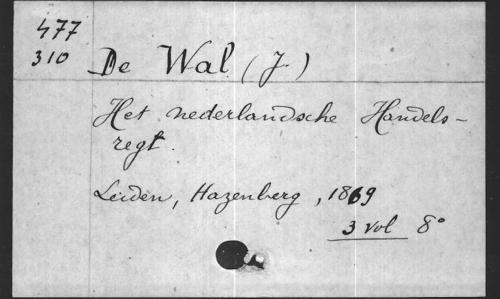 477
310
De Wal (J.)
Het nederlandsche Handels-
regt.
Leiden, Hazenberg, 1869
3 vol 8°